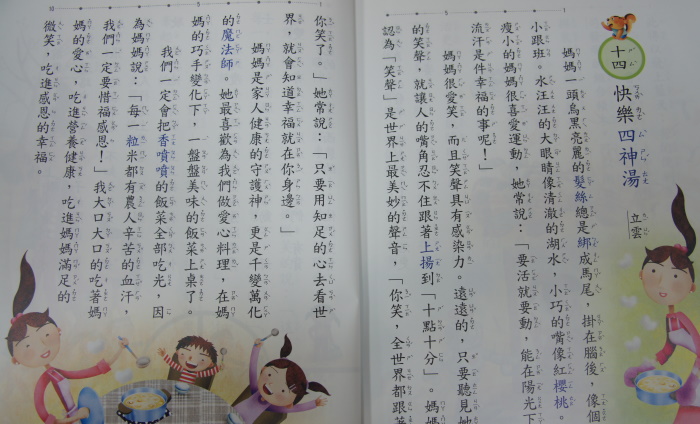 十四
快樂四神湯
立雲
媽媽一頭烏黑亮麗的髮絲總是綁成馬尾，掛在腦後，像個
小跟班。水汪汪的大眼睛像清澈的湖水，小巧的嘴像紅櫻桃。
瘦小的媽媽很喜愛運動，她常說：「要活就要動，能在陽光下
流汗是件幸福的事呢！」
媽媽很愛笑，而且笑聲具有感染力。遠遠的，只要聽見她
的笑聲，就讓人的嘴角忍不住跟著上揚到「十點十分」。媽媽
認為「笑聲」是世界上最美妙的聲音，「你笑，全世界都跟著
你笑了。」她常說：「只要用知足的心去看世
界，就會知道幸福就在你身邊。」
媽媽是家人健康的守護神，更是千變萬化
的魔法師。她最喜歡為我們做愛心料理，在媽
媽的巧手變化下，一盤盤美味的飯菜上桌了。
我們一定會把香噴噴的飯菜全部吃光，因
為媽媽說：「每一粒米都有農人辛苦的血汗，
我們一定要惜福感恩！」我大口大口的吃著媽
媽的愛心，吃進營養健康，吃進媽媽滿足的
微笑，吃進感恩的幸福。